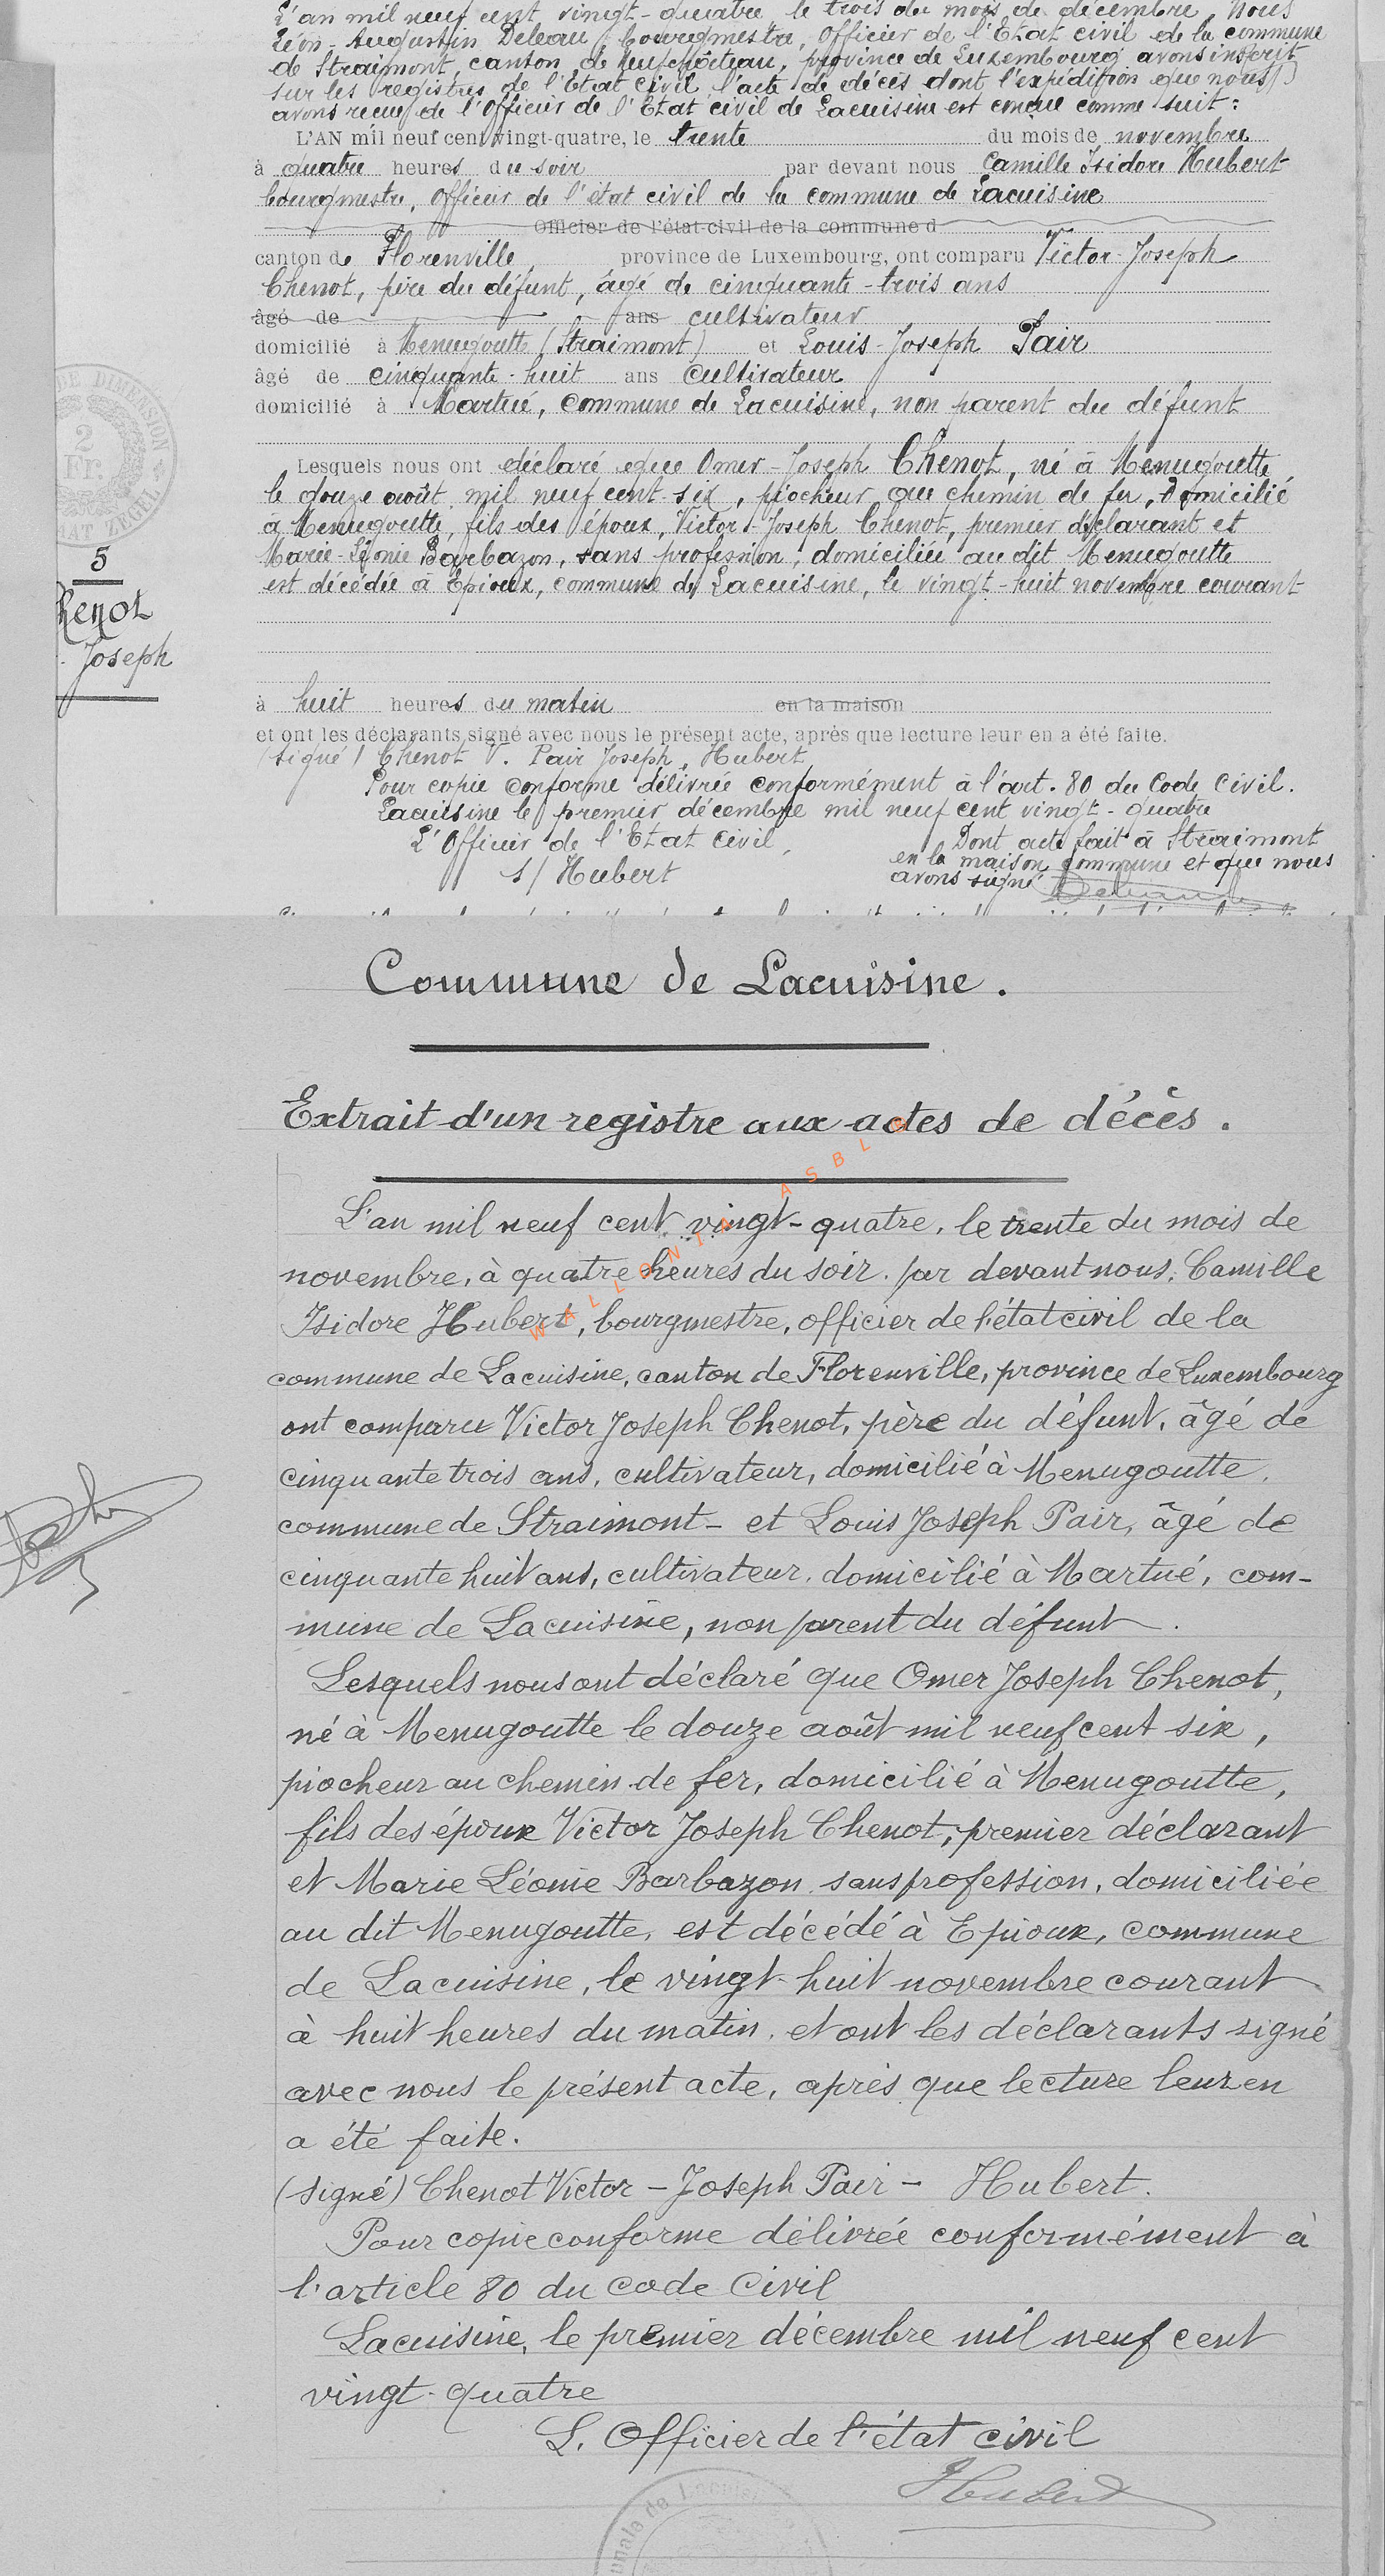 L'an mil neuf cent vingt-quatre le trois du mois de décembre, Nous
Léon-Augustin Deleau, bourgmestre, Officier de l'Etat civil de la commune
de Straimont, canton de Neufchâteau, province de Luxembourg avons inscrit
sur les registres de l'Etat civil l'acte de décès dont l'expédition que nous
avons reçue de l'Officier de l'Etat civil de Lacuisine est conçue comme suit :
L'AN mil neuf cent vingt-quatre, le trente du mois de novembre
à quatre heures du soir par devant nous Camille Isidore Hubert
bourgmestre, Officier de l'état civil de la commune de Lacuisine
Officier de l'état-civil de la commune d
canton de Florenville, province de Luxembourg, ont comparu Victor-Joseph
Chenot, père du défunt, âgé de cinquante-trois ans
âgé de ans cultivateur
domicilié à Menugoutte (Straimont) et Louis-Joseph Pair
âgé de cinquante-huit ans cultivateur
domicilié à Martué, commune de Lacuisine, non parent du défunt
2
Fr.
Lesquels nous ont déclaré que Omer-Joseph Chenot, né à Menugoutte
le douze août mil neuf cent six, piocheur au chemin de fer, domicilié
à Menugoutte, fils des époux, Victor-Joseph Chenot, premier déclarant et
Marie-Léonie Barbazon, sans profession, domiciliée au dit Menugoutte
est décédée à Epioux, commune de Lacuisine, le vingt-huit novembre courant
5
henot
Joseph
à huit heures du matin en la maison
et ont les déclarants signé avec nous le présent acte, après que lecture leur en a été faite.
(signé) Chenot V. Pair Joseph, Hubert
Pour copie conforme délivrée conformément à l'art. 80 du Code Civil.
Lacuisine le premier décembre mil neuf cent vingt-quatre
L'Officier de l'Etat Civil,
s/ Hubert
Dont acte fait à Straimont
en la maison commune et que nous
avons signé
Commune de Lacuisine.
Extrait d'un registre aux actes de décès.
L'an mil neuf cent vingt-quatre, le trente du mois de
novembre, à quatre heures du soir, par devant nous, Camille
Isidore Hubert, bourgmestre, officier de l'état civil de la
commune de Lacuisine, canton de Florenville, province de Luxembourg
ont comparu Victor Joseph Chenot, père du défunt, âgé de
cinquante trois ans, cultivateur, domicilié à Menugoutte,
commune de Straimont - et Louis Joseph Pair, âgé de
cinquante huit ans, cultivateur, domicilié à Martué, com-
mune de Lacuisine, non parent du défunt.
Lesquels nous ont déclaré que Omer Joseph Chenot,
né à Menugoutte le douze août mil neuf cent six,
piocheur au chemin de fer, domicilié à Menugoutte,
fils des époux Victor Joseph Chenot, premier déclarant
et Marie Léonie Barbazon, sans profession, domiciliée
au dit Menugoutte, est décédé à Epioux, commune
de Lacuisine, le vingt-huit novembre courant
à huit heures du matin, et ont les déclarants signé
avec nous le présent acte, après que lecture leur en
a été faite.
(signé) Chenot Victor - Joseph Pair - Hubert.
Pour copie conforme délivrée conformément à
l'article 80 du code Civil
Lacuisine, le premier décembre mil neuf cent
vingt-quatre
L. Officier de l'état civil
Hubert
WALLONIA ASBL